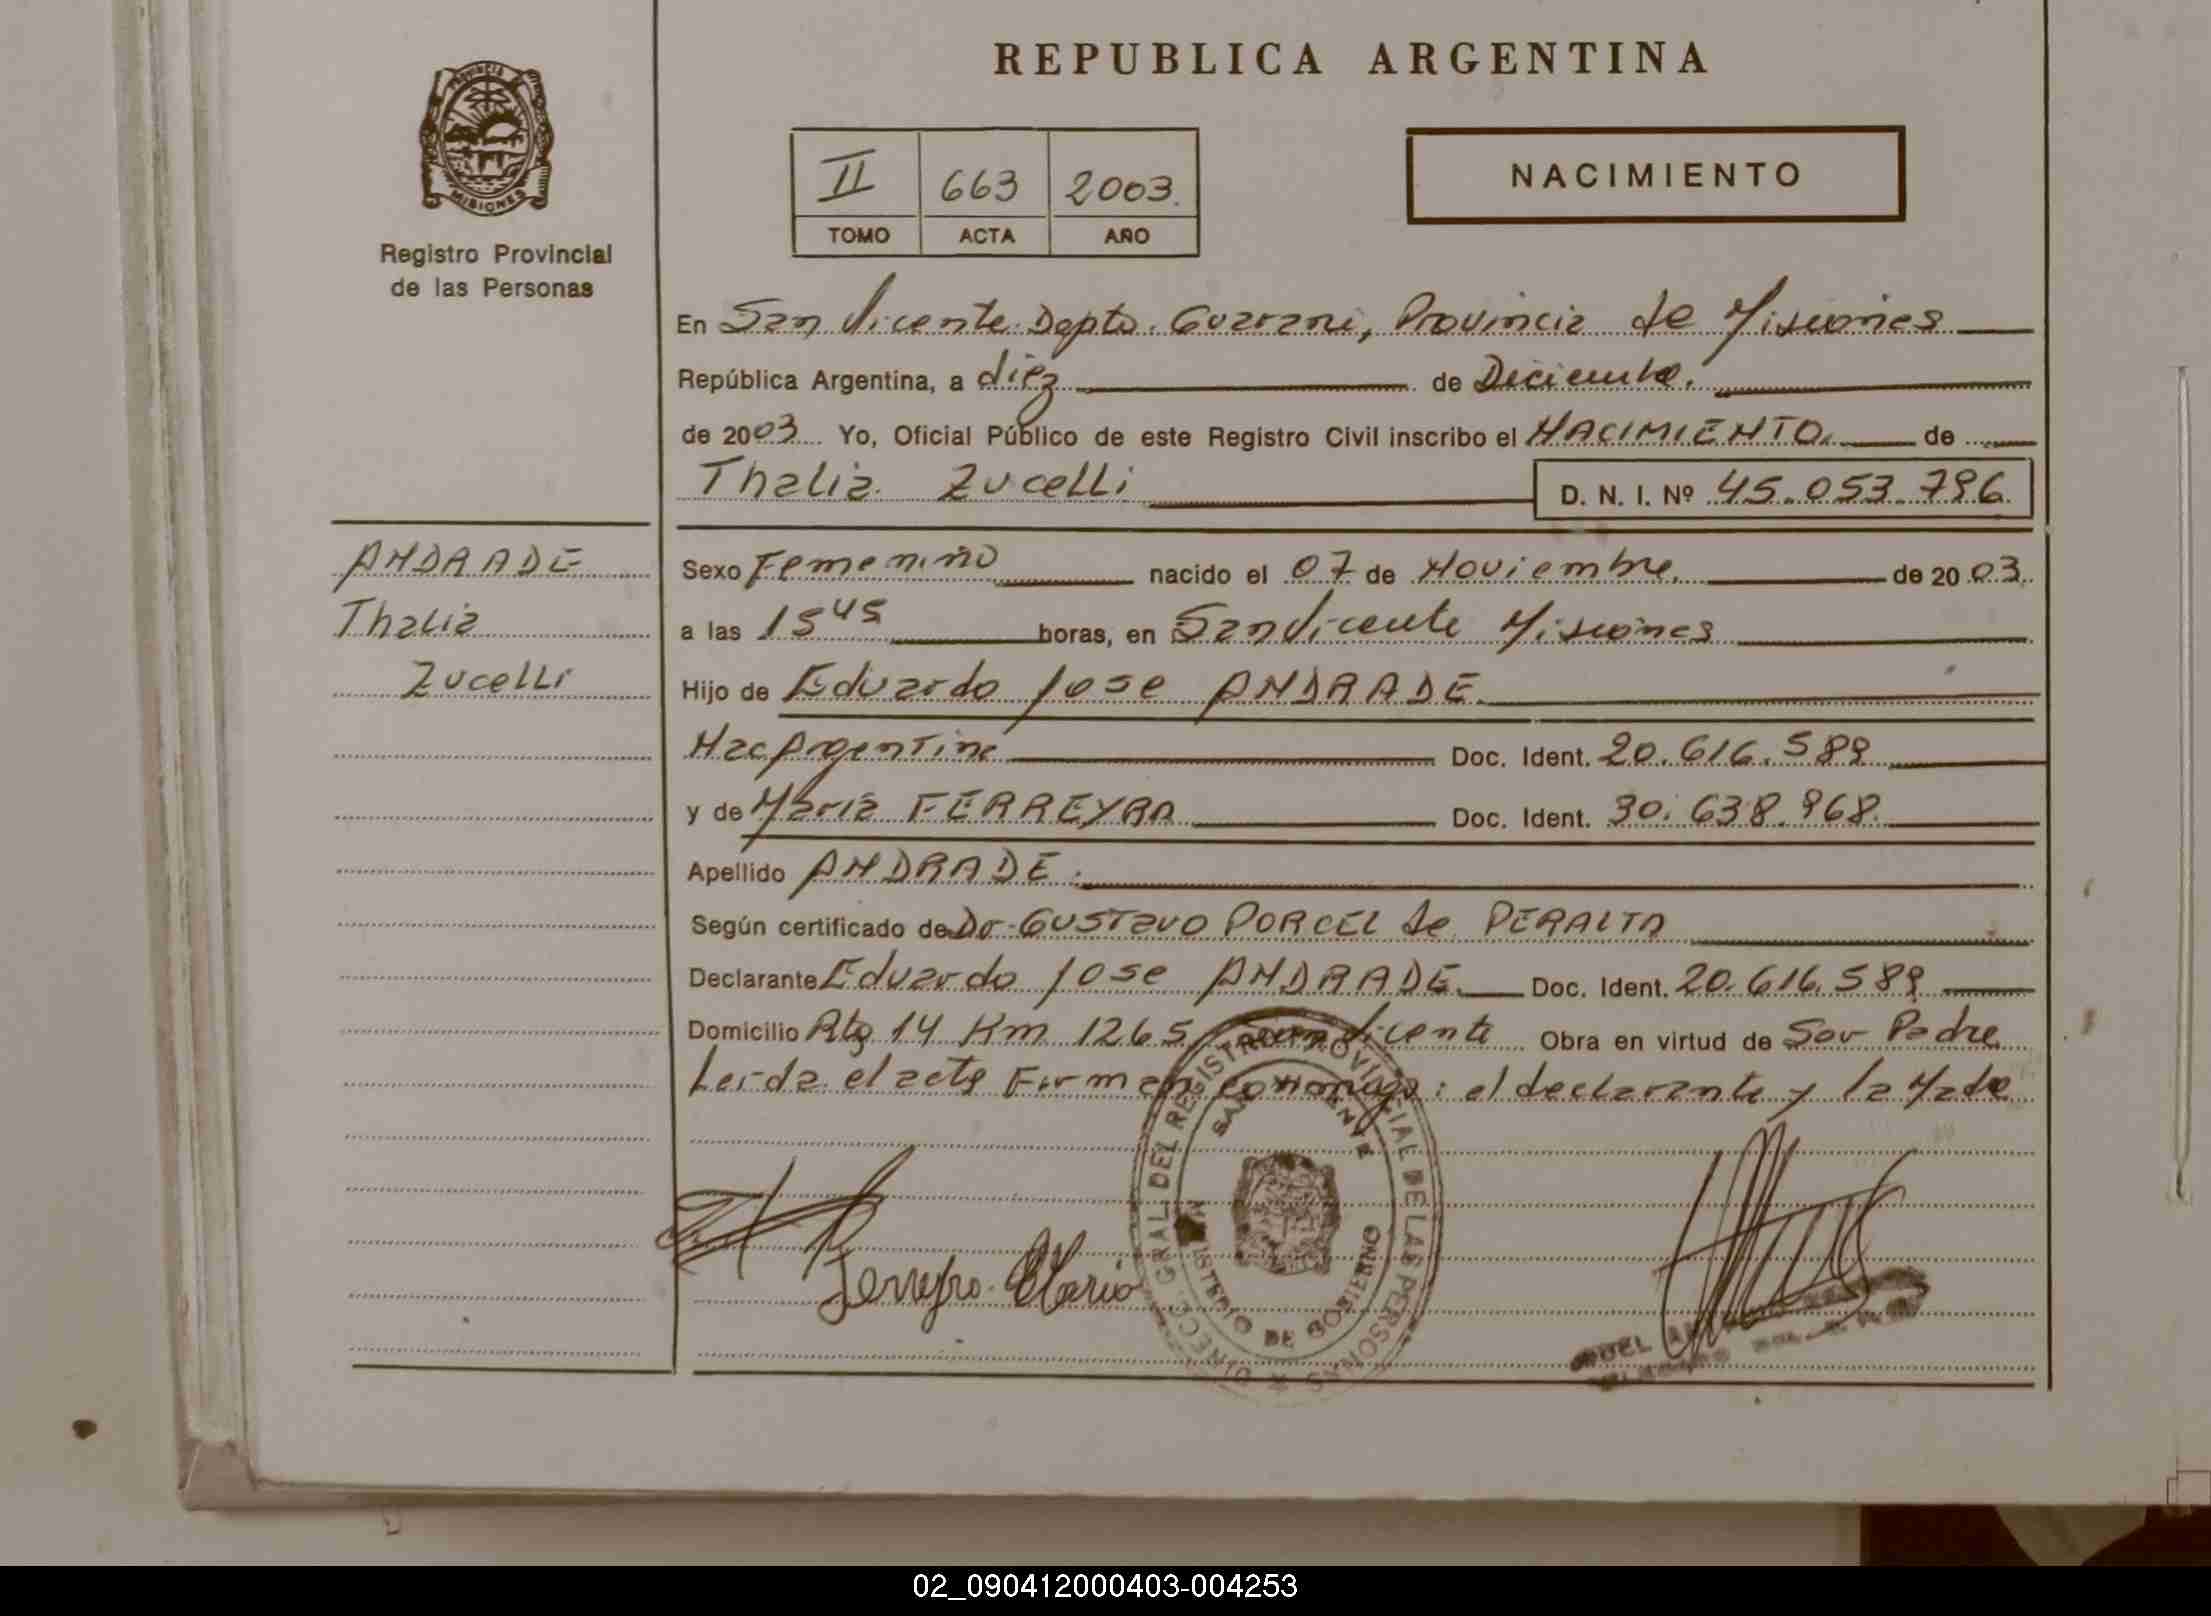 PROVINCIA DE
MISIONES
Registro Provincial
de las Personas
REPUBLICA ARGENTINA
II 663 2003.
TOMO ACTA AÑO
NACIMIENTO
En San Vicente Depto. Guarani, Provincia de Misiones
República Argentina, a diez de Diciembre.
de 2003 Yo, Oficial Público de este Registro Civil inscribo el NACIMIENTO. de
Thalia Zucelli D. N. I. Nº 45.053.796
ANDRADE
Thalia
Zucelli
Sexo Femenino nacido el 07 de Noviembre de 2003.
a las 15 45 horas, en San Vicente Misiones
Hijo de Eduardo Jose ANDRADE
Nac Argentina Doc. Ident. 20.616.589
y de Maria FERREYRA Doc. Ident. 30.638.968
Apellido ANDRADE.
Según certificado de Dr. GUSTavo PORCEL de PERALTA
Declarante Eduardo Jose ANDRADE. Doc. Ident. 20.616.589
Domicilio Rta 14 Km 1265 San Vicente Obra en virtud de Ser Padre
Leida el acta Firman conmigo: el declarante y la Madre
Ferreyra Maria
DIRECC. GRAL. DEL REGISTRO PROVINCIAL DE LAS PERSONAS
SAN VICENTE
MINISTERIO DE GOBIERNO
02_090412000403-004253